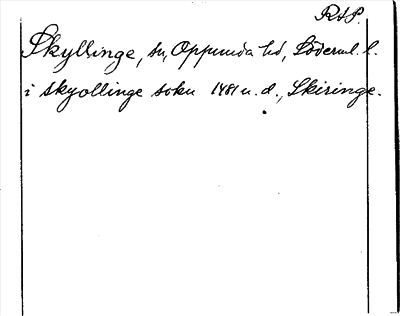 RAP.
Skyllinge, sn, Oppunda hd, Söderml. l.
i skyollinge sokn 1481 u. d., Skiringe.